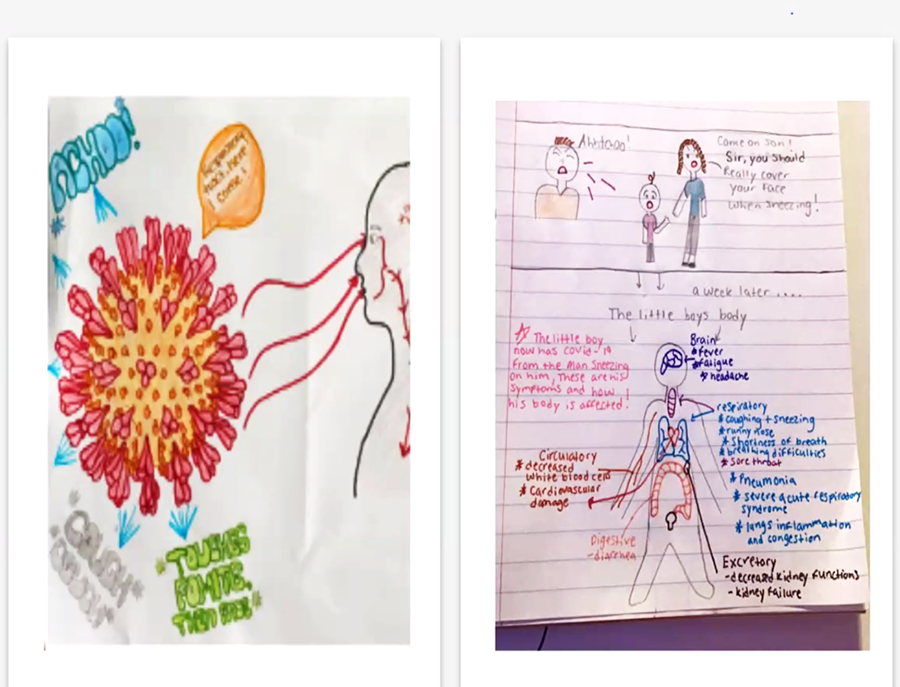 ACHOO!
Respiratory
tract, here
I come!
*COUGH*
*TOUCHES
FOMITE,
THEN FACE*
Ahhtchoo!
Come on son!
Sir, you should
Really cover
your face
when sneezing!
a week later....
The little boys body
The little boy
now has covid-19
from the man sneezing
on him, These are his
symptoms and how
his body is affected!
Brain
*fever
*fatigue
*headache
respiratory
*coughing + sneezing
*runny nose
*Shortness of breath
*breathing difficulties
*sore throat
*Pneumonia
*severe acute respiratory
syndrome
*lungs inflammation
and congestion
Circulatory
*decreased
white blood cells
*Cardiovascular
damage
Digestive
-diarrhea
Excretory
-decreased kidney functions
-kidney failure